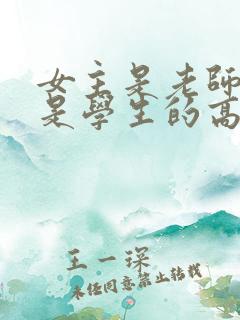 女主是老師
是學生的高
王一琛
未经同意禁止转载